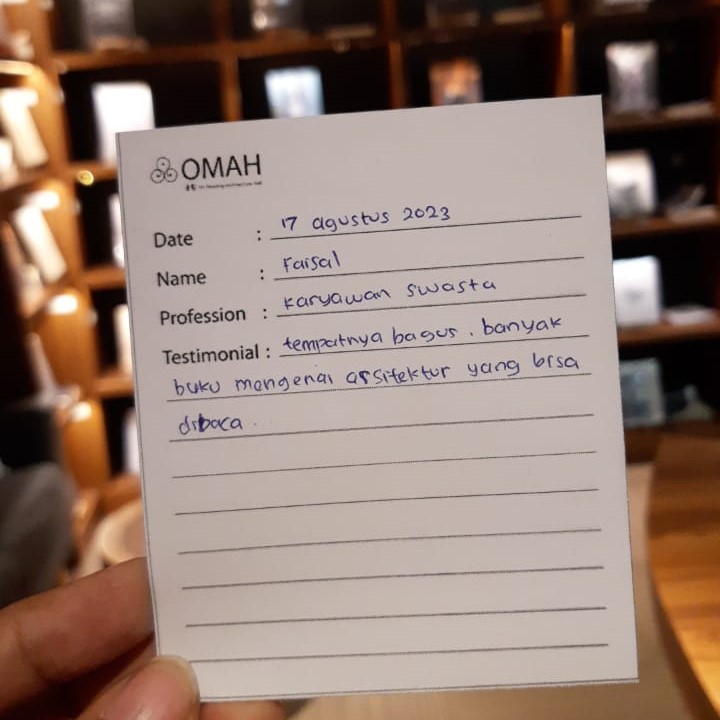 OMAH
Date : 17 agustus 2023
Name : Faisal
Profession : karyawan swasta
Testimonial : tempatnya bagus. banyak
buku mengenai arsitektur yang bisa
dibaca.